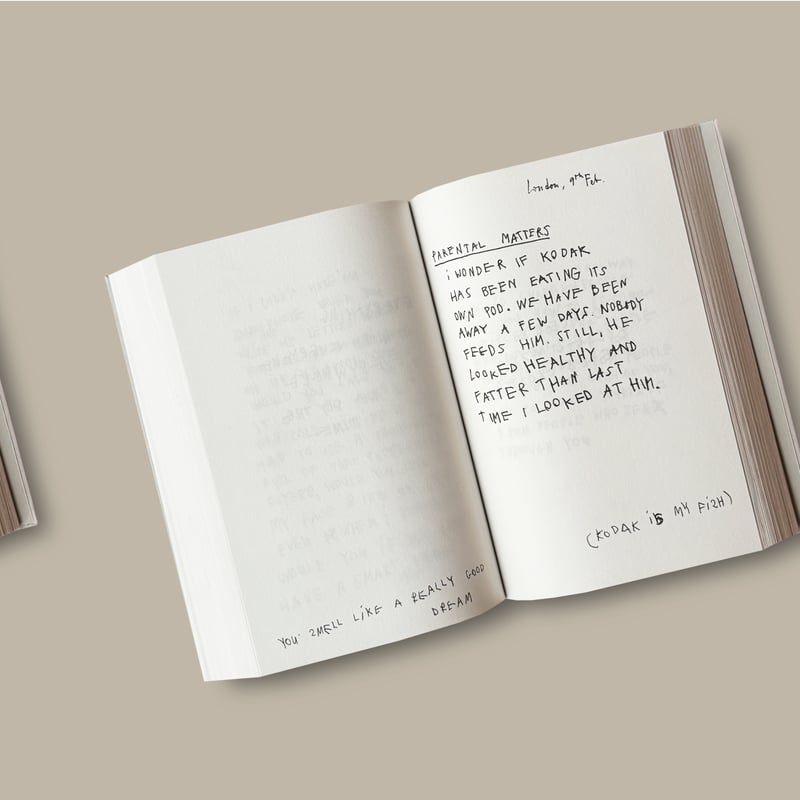 YOU SMELL LIKE A REALLY GOOD
DREAM
London, 9th Feb.
PARENTAL MATTERS
i WONDER IF KODAK
HAS BEEN EATING ITS
OWN POO. WE HAVE BEEN
AWAY A FEW DAYS. NOBODY
FEEDS HIM. STILL, HE
LOOKED HEALTHY AND
FATTER THAN LAST
TIME I LOOKED AT HIM.
(KODAK iS MY FiSH)